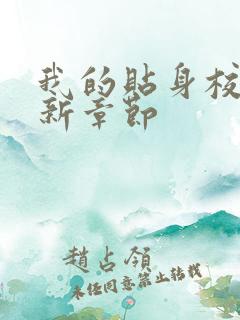 我的貼身校
新章節
趙占領
未经同意禁止转载